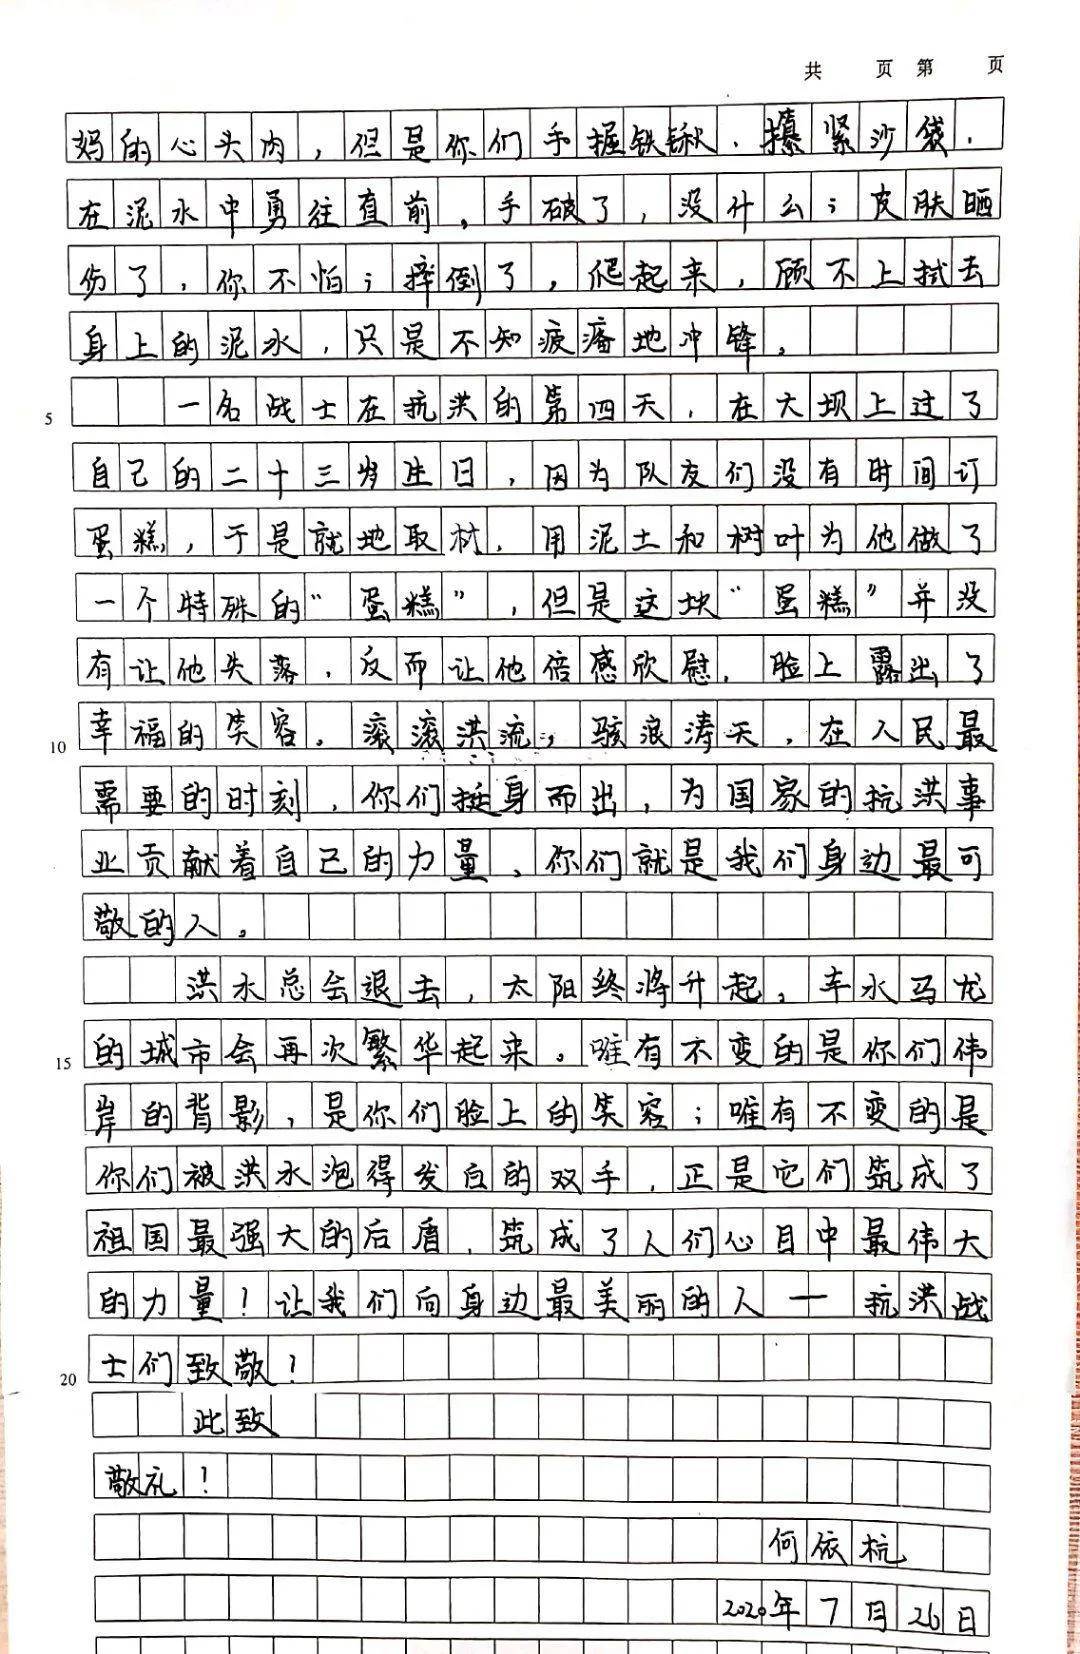 共 页 第 页
妈的心头肉，但是你们手握铁锹，攥紧沙袋，
在泥水中勇往直前。手破了，没什么；皮肤晒
伤了，你不怕；摔倒了，爬起来，顾不上拭去
身上的泥水，只是不知疲倦地冲锋。
5 一名战士在抗洪的第四天，在大坝上过了
自己的二十三岁生日，因为队友们没有时间订
蛋糕，于是就地取材，用泥土和树叶为他做了
一个特殊的“蛋糕”，但是这块“蛋糕”并没
有让他失落，反而让他倍感欣慰，脸上露出了
10 幸福的笑容。滚滚洪流，骇浪涛天，在人民最
需要的时刻，你们挺身而出，为国家的抗洪事
业贡献着自己的力量，你们就是我们身边最可
敬的人。
洪水总会退去，太阳终将升起，车水马龙
15 的城市会再次繁华起来。唯有不变的是你们伟
岸的背影，是你们脸上的笑容；唯有不变的是
你们被洪水泡得发白的双手，正是它们筑成了
祖国最强大的后盾，筑成了人们心目中最伟大
的力量！让我们向身边最美丽的人——抗洪战
20 士们致敬！
此致
敬礼！
何依杭
2020年7月26日